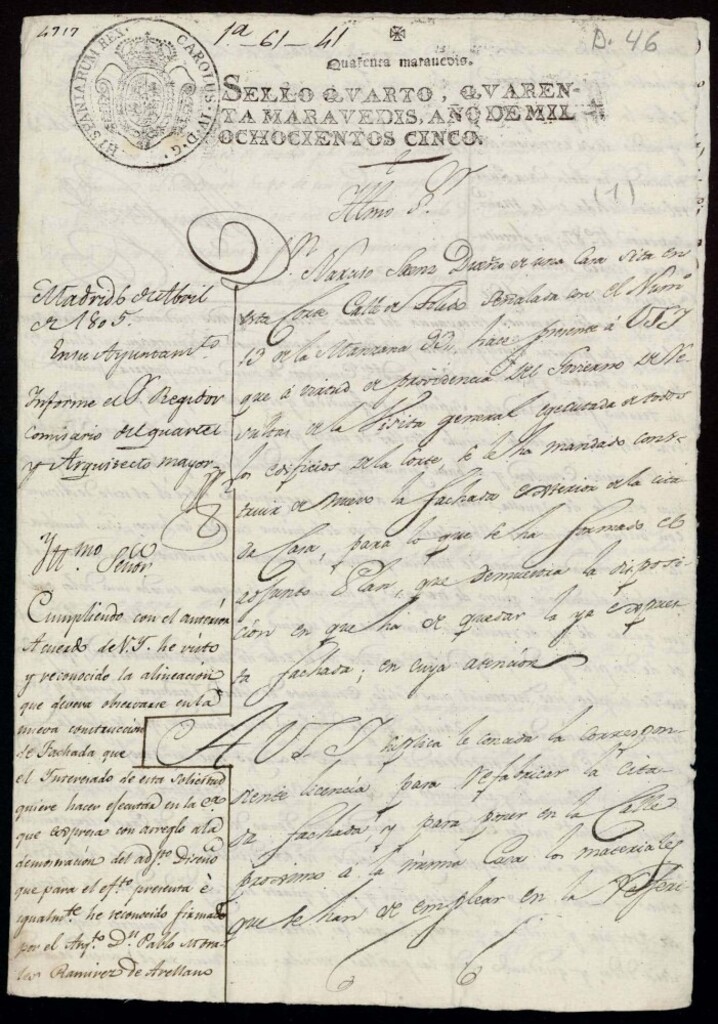 4717
1ª-61-41
D. 46
Quarenta marauedis.
HISPANIARUM REX. CAROLUS IV. D. G.
SELLO QVARTO, QVAREN-
TA MARAVEDIS, AÑO DE MIL
OCHOCIENTOS CINCO.
Yllmo Sr.
(1)
Dn. Saenz Dueño de una Casa sita en
esta Corte Calle de Toledo señalada con el Numo
13 de la Manzana hace presente á VSI
que á virtud de providencia del
de la Visita general ejecutada de todos
los edificios de la Corte, se le ha mandado cons-
truir de nuevo la fachada exterior de la cita
da Casa, para lo que se ha formado el
adjunto Plan, que demuestra la disposi
ción en que ha de quedar la ya expues-
ta fachada; en cuya atención
A VSI suplica le conceda la correspon
diente licencia para refabricar la cita
da fachada y para poner en la Calle
proximo á la misma Casa los materiales
que se han de emplear en la
Madrid 6 de Abril
de 1805.
En su Ayuntamto.
Informe el Sr. Regidor
Comisario del quartel
y Arquitecto mayor
Yllmo Señor
Cumpliendo con el anterior
Acuerdo de V.I. he visto
y reconocido la alineacion
que devera observarse en la
nueva construccion
de Fachada que
el Interesado de esta solicitud
quiere hacer ejecutar en la Cª.
que expresa con arreglo a la
demostración del adjto. Diseño
que para el efto. presenta é
igualmte. he reconocido firmado
por el Arqto. Dn. Pablo Mora-
les Ramirez de Arellano